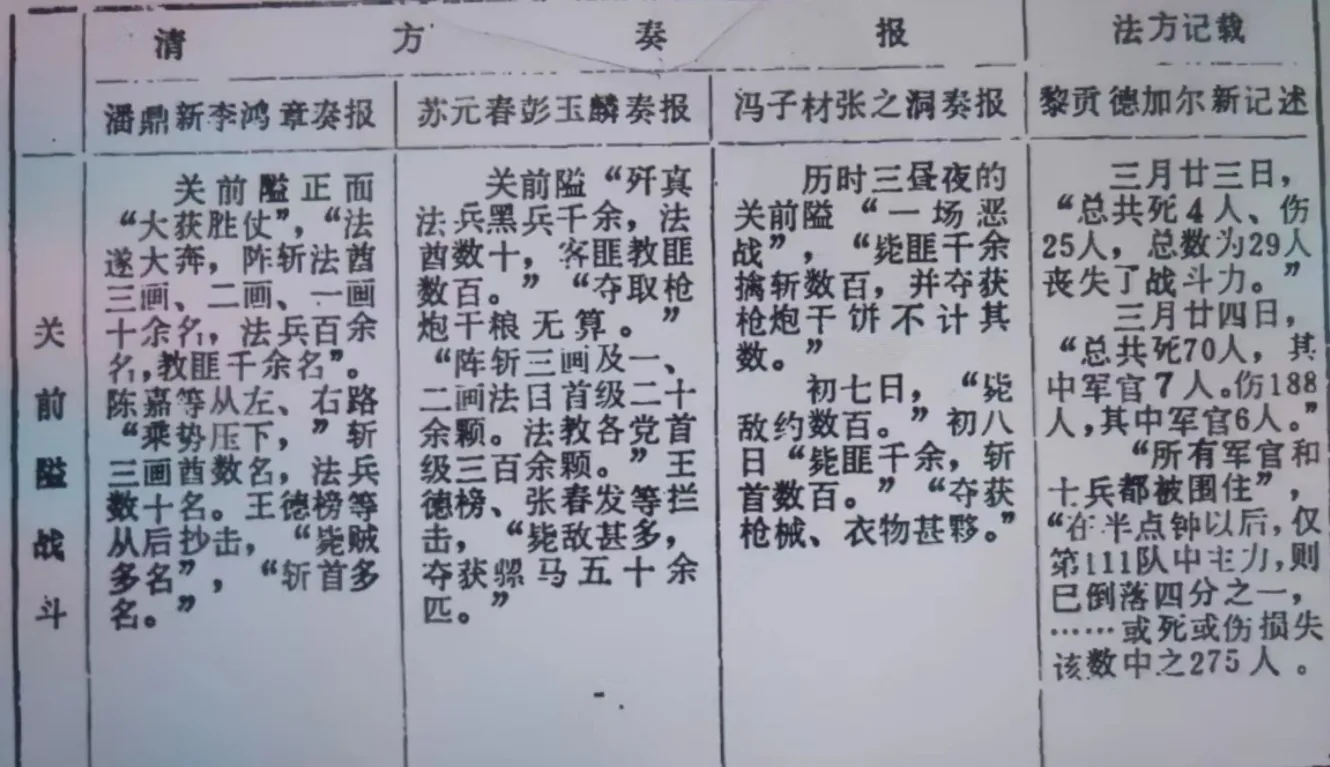 清方奏报
法方记载
潘鼎新李鸿章奏报
苏元春彭玉麟奏报
冯子材张之洞奏报
黎贡德加尔新记述
关前隘战斗
关前隘正面
“大获胜仗”，“法
遂大奔，阵斩法酋
三画、二画、一画
十余名，法兵百余
名，教匪千余名”。
陈嘉等从左、右路
“乘势压下，”斩
三画酋数名，法兵
数十名。王德榜等
从后抄击，“毙贼
多名”，“斩首多
名。”
关前隘“歼真
法兵黑兵千余，法
酋数十，客匪教匪
数百。”“夺取枪
炮干粮无算。”
“阵斩三画及一、
二画法目首级二十
余颗。法教各党首
级三百余颗。”王
德榜、张春发等拦
击，“毙敌甚多，
夺获骡马五十余
匹。”
历时三昼夜的
关前隘“一场恶
战”，“毙匪千余
擒斩数百，并夺获
枪炮干饼不计其
数。”
初七日，“毙
敌约数百。”初八
日“毙匪千余，斩
首数百。”“夺获
枪械、衣物甚夥。”
三月廿三日，
“总共死4人、伤
25人，总数为29人
丧失了战斗力。”
三月廿四日，
“总共死70人，其
中军官7人。伤188
人，其中军官6人。”
“所有军官和
士兵都被围住”，
“在半点钟以后，仅
第111队中主力，则
已倒落四分之一，
……或死或伤损失
该数中之275人。